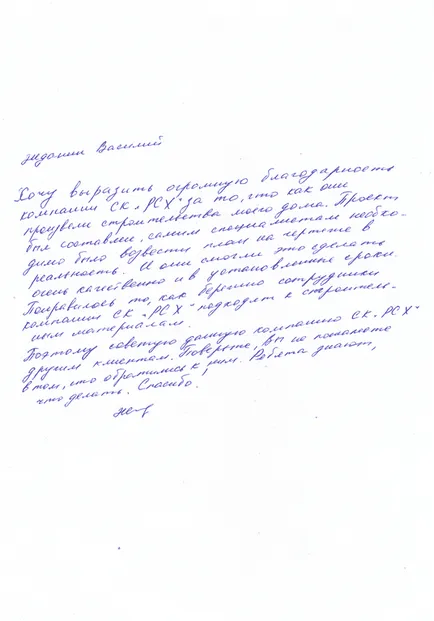 Жданин Василий
Хочу выразить огромную благодарность
компании СК "РСХ" за то, что как они
произвели строительства моего дома. Проект
был составлен, самим специалистам необхо-
димо было возвести план на чертеже в
реальность. И они смогли это сделать
очень качественно и в установленные сроки.
Понравилось то, как бережно сотрудники
компании СК "РСХ" подходят к строитель-
ным материалам.
Поэтому советую данную компанию СК "РСХ"
другим клиентам. Поверьте, Вы не пожалеете
в том, что обратились к ним. Ребята знают,
что делать. Спасибо.